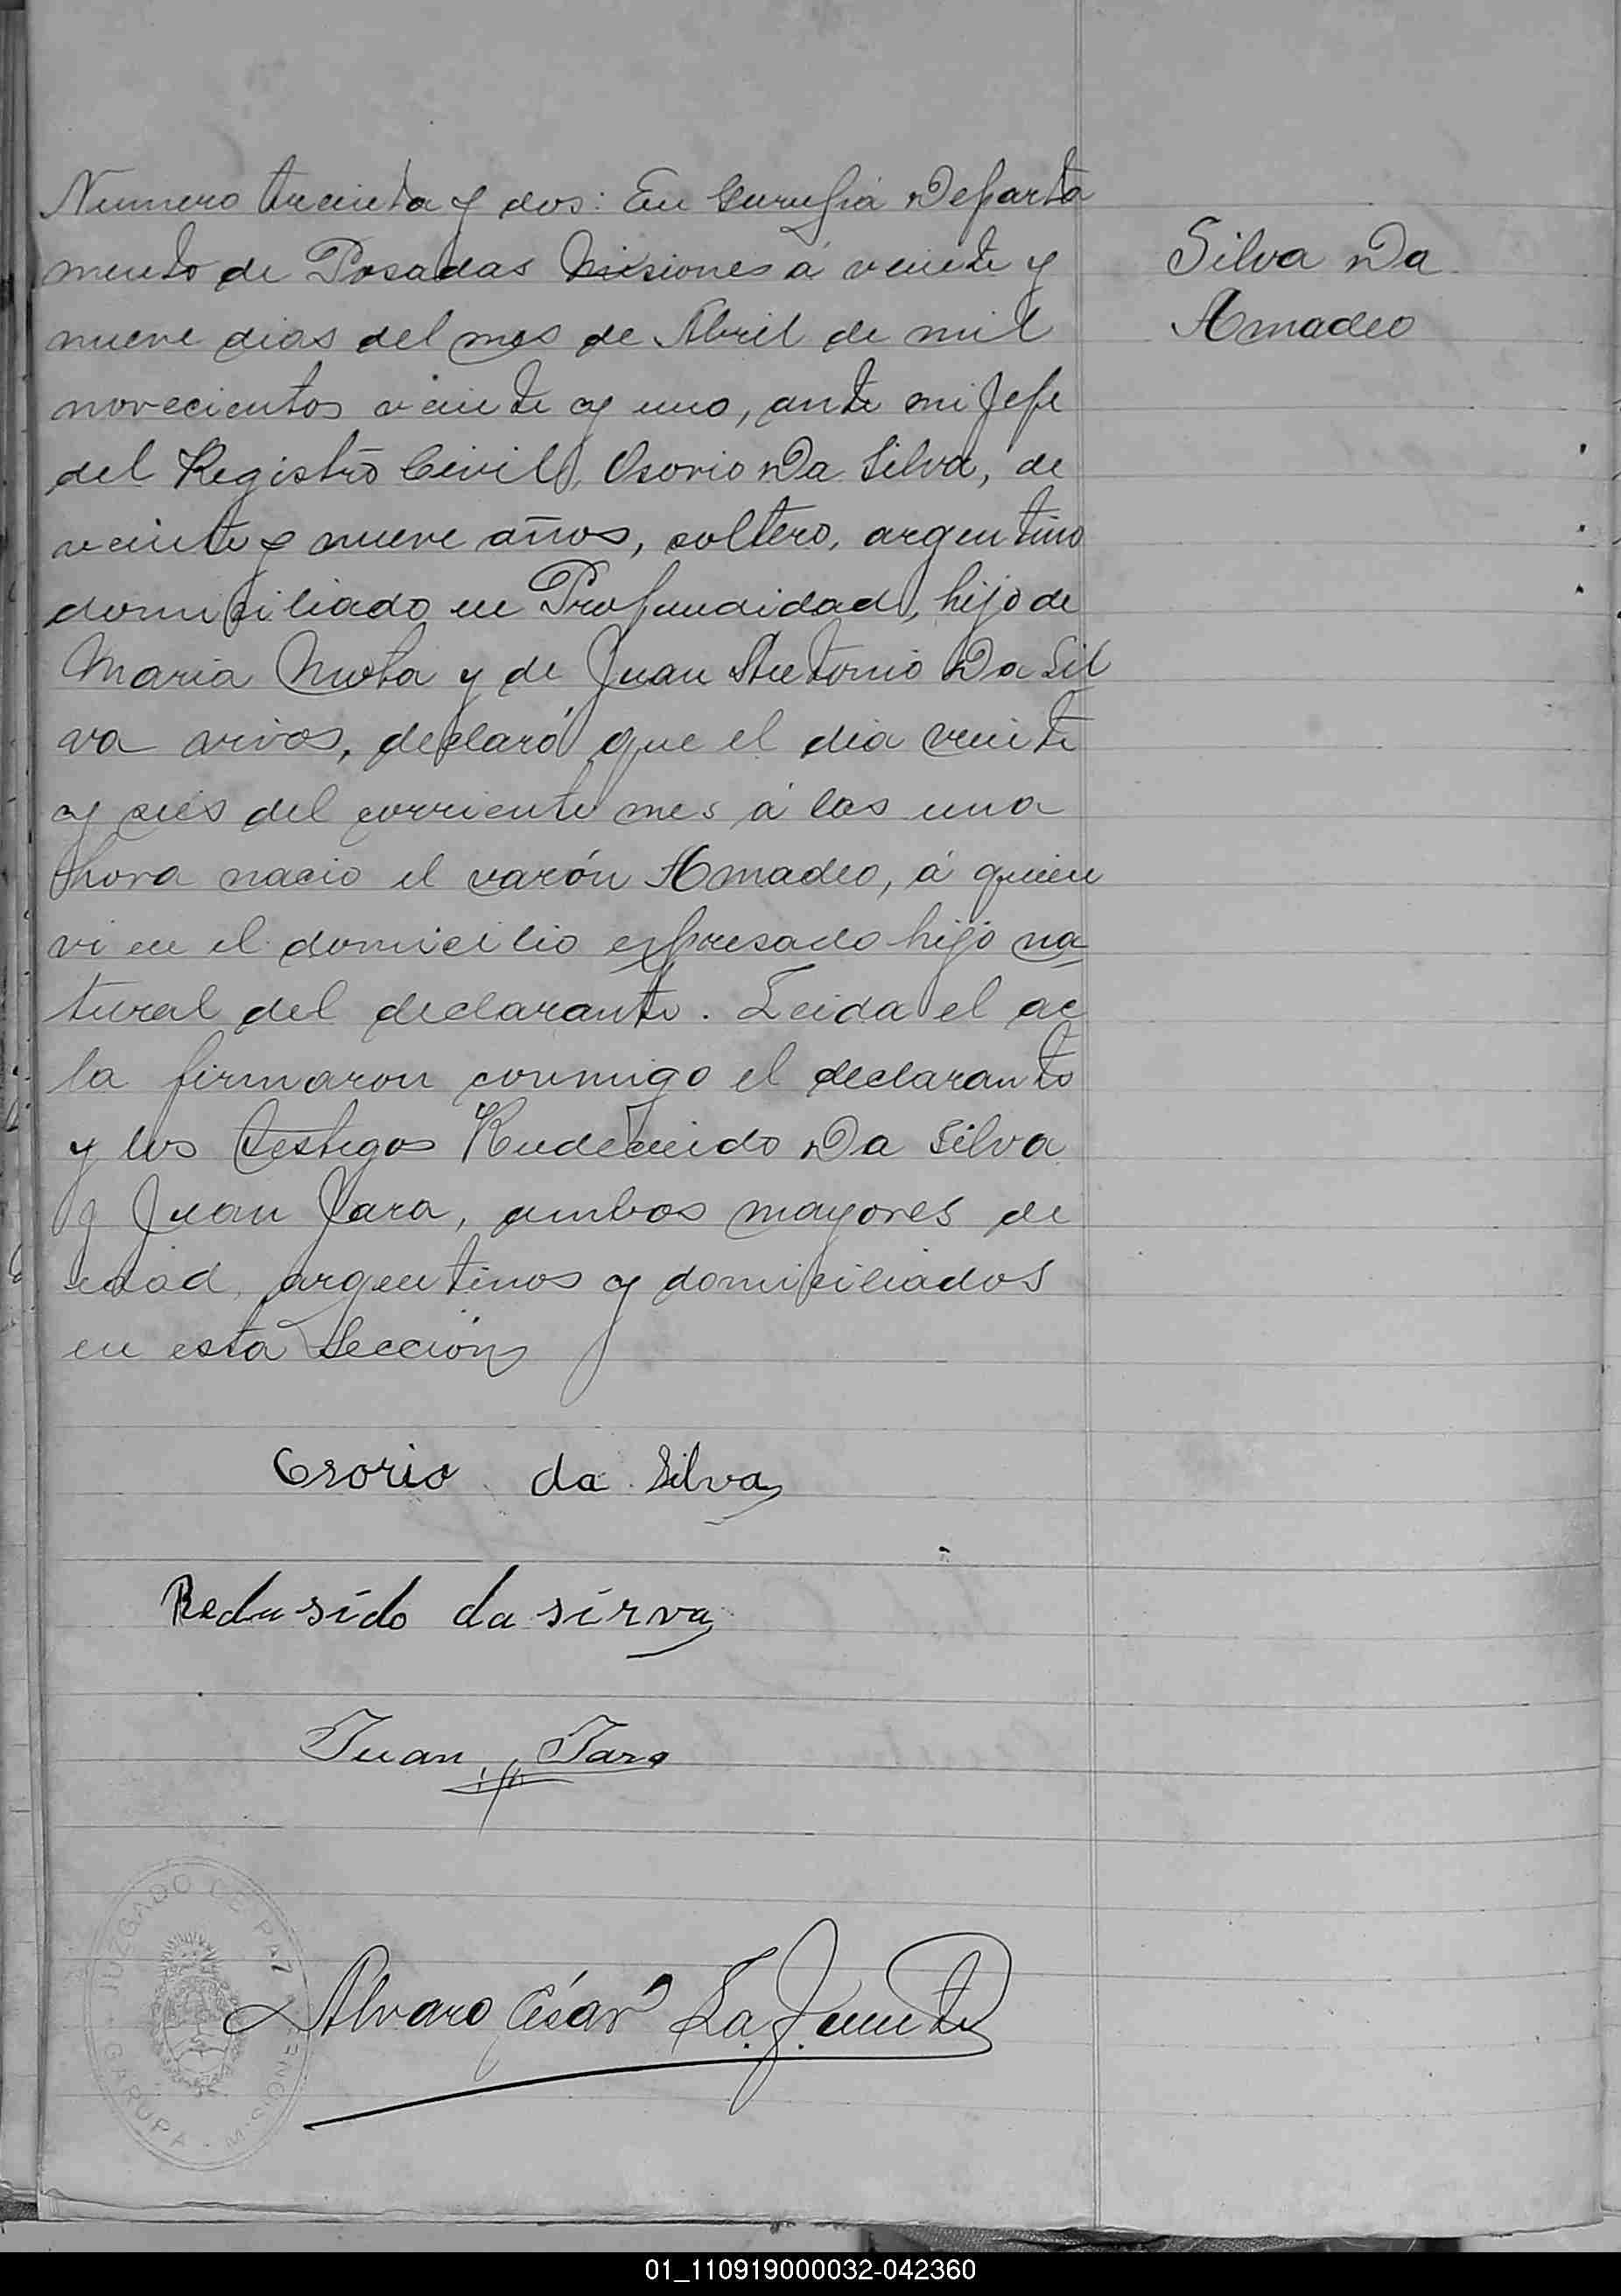 Numero treinta y dos: En Garupá Departa
mento de Posadas Misiones á veinte y
nueve dias del mes de Abril de mil
novecientos veinte y uno, ante mi Jefe
del Registro Civil, Osorio Da Silva, de
veinte y nueve años, soltero, argentino
domiciliado en Profundidad, hijo de
Maria Mota y de Juan Antonio Da Sil
va vivos, declaró que el dia veinte
y seis del corriente mes á las una
hora nacio el varón Amadeo, á quien
vi en el domicilio expresado hijo na
tural del declarante. Leida el ac
ta firmaron conmigo el declarante
y los testigos Rudecindo Da Silva
y Juan Jara, ambos mayores de
edad, argentinos y domiciliados
en esta Seccion
Silva Da
Amadeo
Osorio da Silva
Redusido da sirva
Juan Jara
Alvaro César La Fuente
JUZGADO DE PAZ
GARUPA
01_110919000032-042360